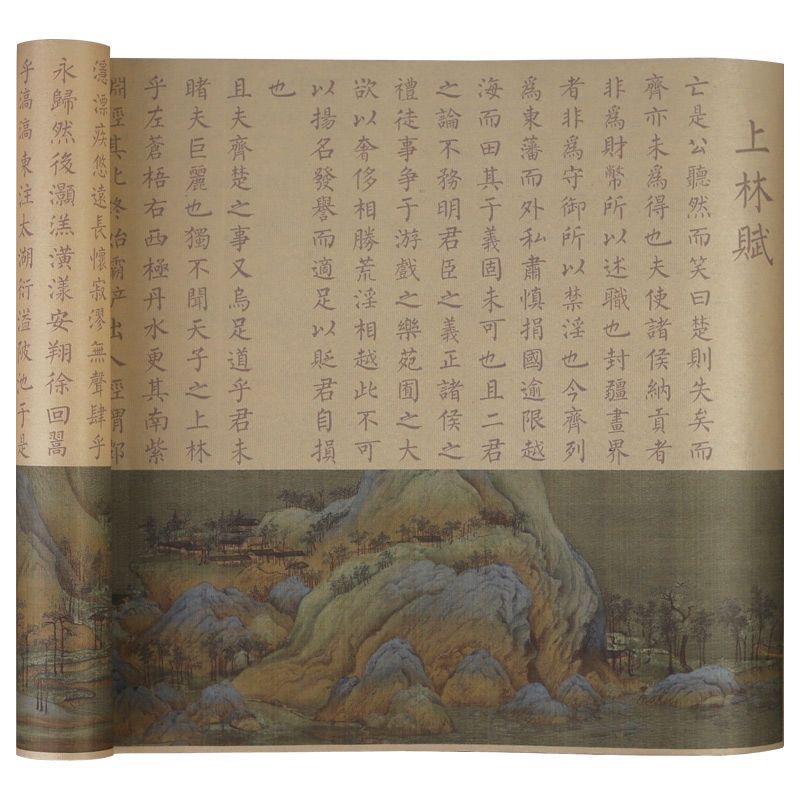 上林賦
亡是公聽然而笑曰楚則失矣而
齊亦未爲得也夫使諸侯納貢者
非爲財幣所以述職也封疆畫界
者非爲守御所以禁淫也今齊列
爲東藩而外私肅慎捐國逾限越
海而田其于義固未可也且二君
之論不務明君臣之義正諸侯之
禮徒事爭于游戲之樂苑囿之大
欲以奢侈相勝荒淫相越此不可
以揚名發譽而適足以貶君自損
也
且夫齊楚之事又烏足道乎君未
睹夫巨麗也獨不聞天子之上林
乎左蒼梧右西極丹水更其南紫
淵徑其北終始霸产出入徑渭
漂疾悠遠長懷寂漻無聲肆乎
永歸然後灝溔潢漾安翔徐回翯
乎滈滈東注太湖衍溢陂池于是